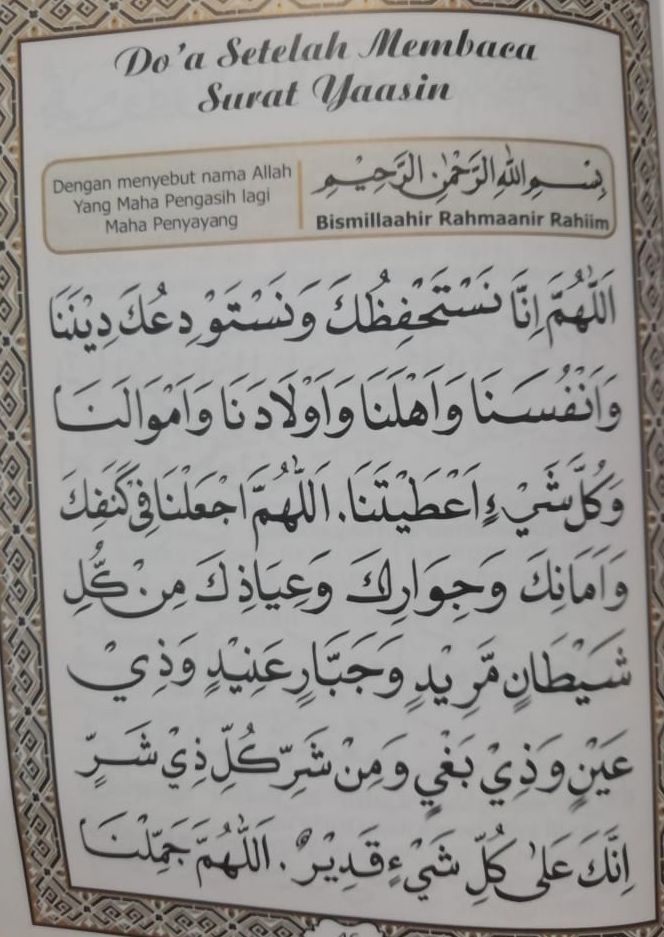 Do'a Setelah Membaca
Surat Yaasin
Dengan menyebut nama Allah
Yang Maha Pengasih lagi
Maha Penyayang
بِسْمِ اللهِ الرَّحْمٰنِ الرَّحِيْمِ
Bismillaahir Rahmaanir Rahiim
اَللّٰهُمَّ اِنَّا نَسْتَحْفِظُكَ وَنَسْتَوْدِعُكَ دِيْنَنَا
وَاَنْفُسَنَا وَاَهْلَنَا وَاَوْلَادَنَا وَاَمْوَالَنَا
وَكُلَّ شَيْءٍ اَعْطَيْتَنَا. اَللّٰهُمَّ اجْعَلْنَا فِيْ كَنَفِكَ
وَاَمَانِكَ وَجِوَارِكَ وَعِيَاذِكَ مِنْ كُلِّ
شَيْطَانٍ مَّرِيْدٍ وَجَبَّارٍ عَنِيْدٍ وَذِيْ
عَيْنٍ وَذِيْ بَغْيٍ وَمِنْ شَرِّ كُلِّ ذِيْ شَرٍّ
اِنَّكَ عَلٰى كُلِّ شَيْءٍ قَدِيْرٌ. اَللّٰهُمَّ جَمِّلْنَا